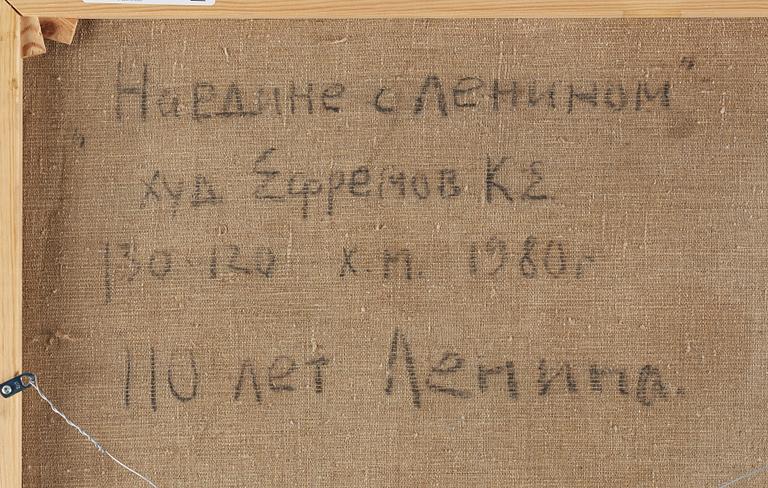 "Наедине с Лениным"
худ Ефремов К Е
130-120 х.м. 1980г
110 лет Ленина.